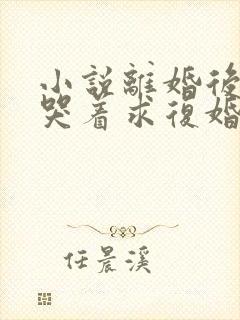 小説離婚後
哭着求復婚
任晨溪